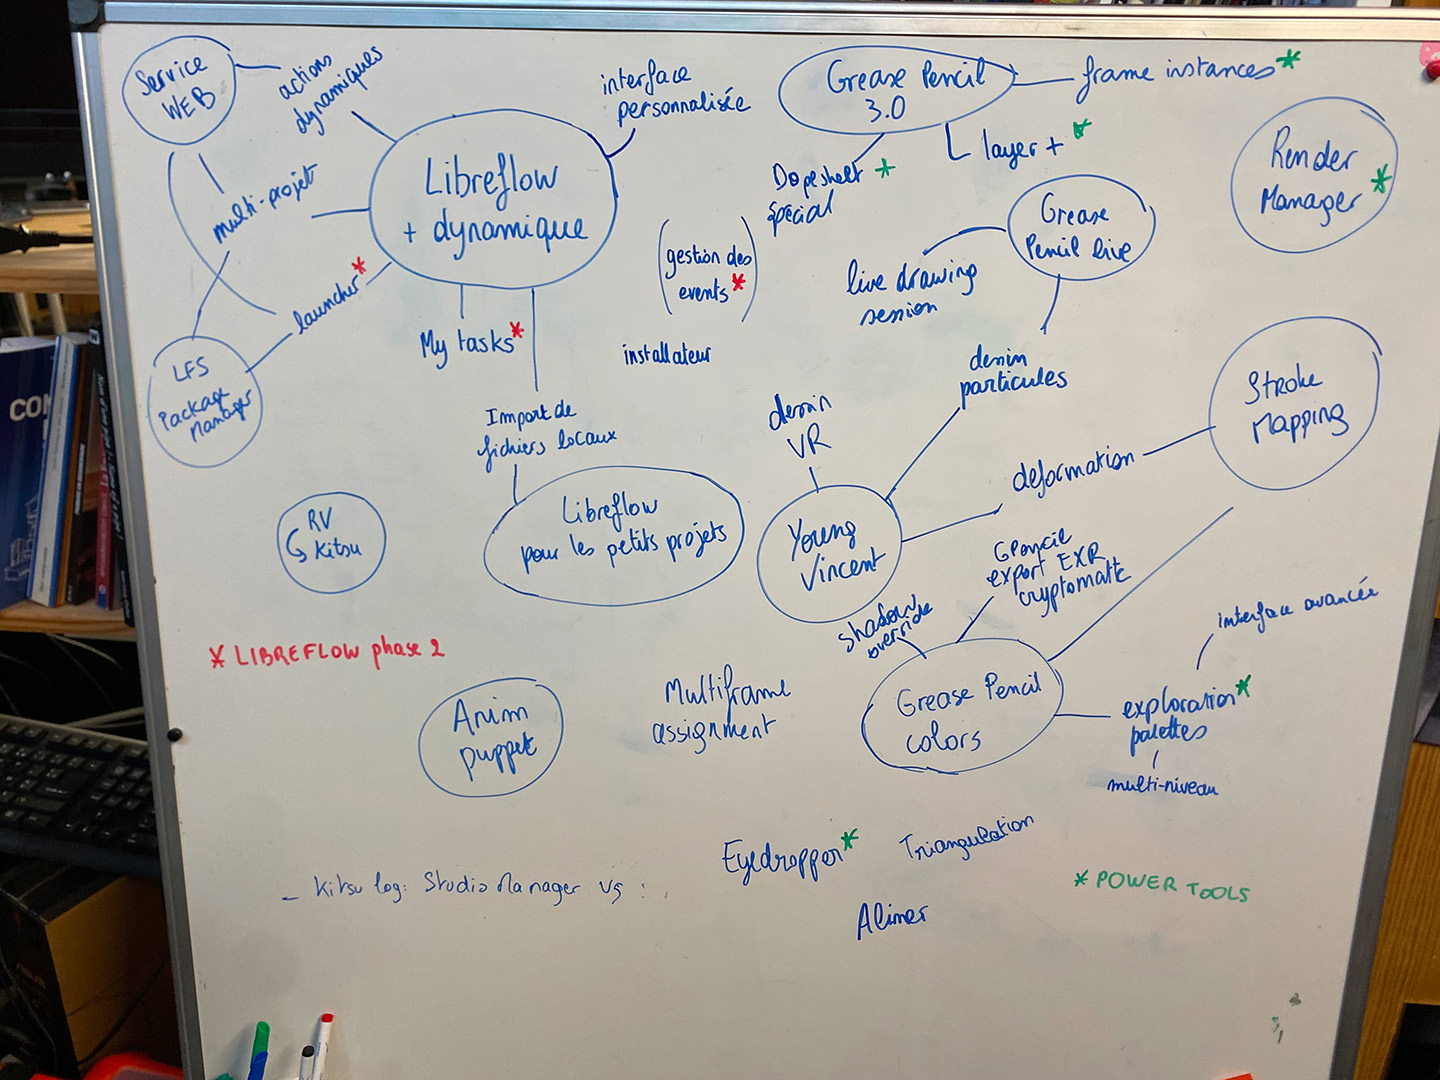 Service
WEB
actions
dynamiques
multi-projet
Libreflow
+ dynamique
interface
personnalisée
launcher*
LFS
Package
Manager
My tasks*
Import de
fichiers locaux
Libreflow
pour les petits projets
(gestion des
events*)
installateur
RV
Kitsu
* LIBREFLOW phase 2
Grease Pencil
3.0
frame instances*
layer + *
Dopesheet *
special
Render
Manager*
Grease
Pencil live
live drawing
session
dessin
particules
dessin
VR
Stroke
Mapping
deformation
Young
Vincent
GPencil
export EXR
cryptomatte
shadow
override
Grease Pencil
colors
interface avancée
exploration*
palettes
multi-niveau
Anim
puppet
Multiframe
assignment
Eyedropper*
Triangulation
Alimer
* POWER TOOLS
- Kitsu log: Studio Manager vs :